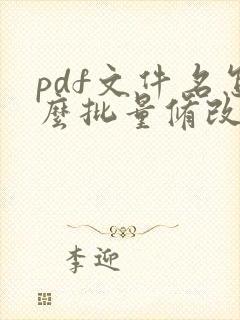 pdf文件名怎
麽批量修改
李迎